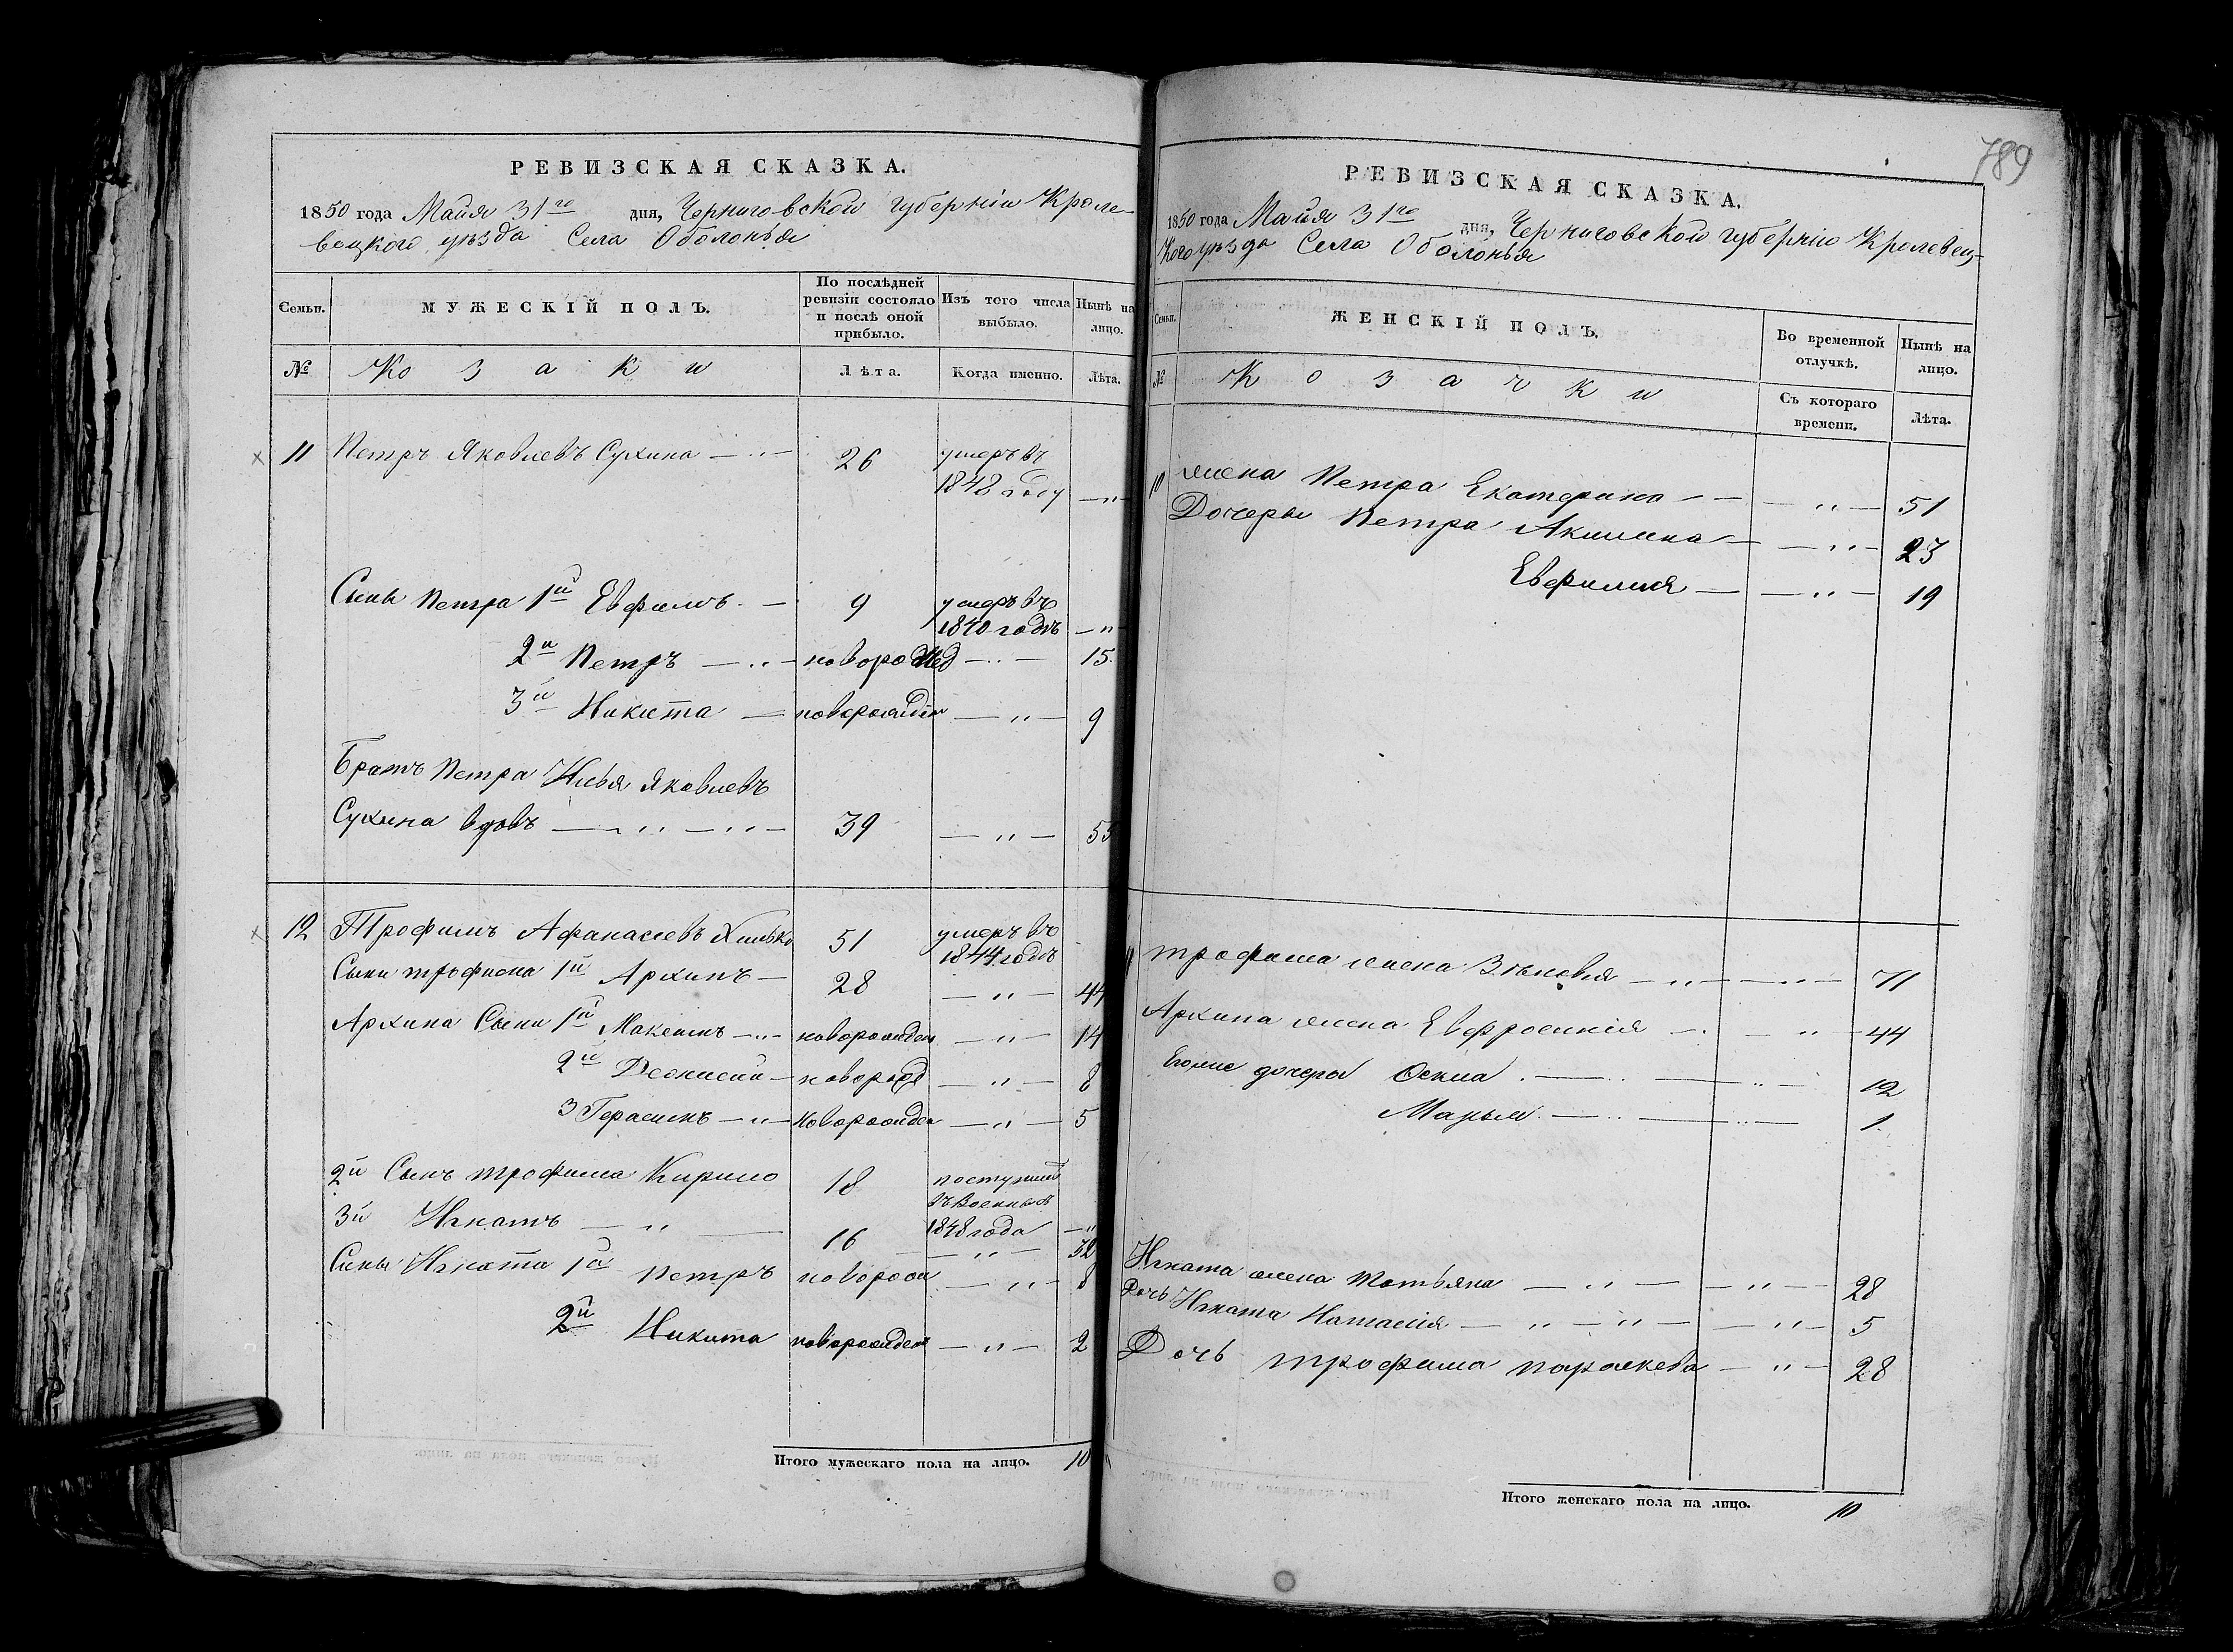 РЕВИЗСКАЯ СКАЗКА.
1850 года Майя 31го дня, Черниговской губернiи Кроле-
вецкого уѣзда Села Оболонья
Семьи. МУЖЕСКIЙ ПОЛЪ. По послѣдней ревизiи состояло и послѣ оной прибыло. Изъ того числа выбыло. Нынѣ на лицо.
№ Козаки Лѣта. Когда именно. Лѣта.
11 Петръ Яковлевъ Сухина — „ — 26 умеръ въ
1848 году — „ —
Сины Петра 1й Евфимъ — 9 умеръ въ
1840 годѣ — „
2й Петръ — „ — новорожд — „ — 15
3й Никита — новорожден — „ — 9
Братъ Петра Илья Яковлевъ
Сухина вдовъ — „ — „ — 39 — „ — 55
12 Трофимъ Афанасiевъ Хилько 51 умеръ въ
1844 годѣ
Сыни трофима 1й Архипъ — 28 — „ — 44
Архипа Сыни 1й Макsимъ — „ — новорожден — „ — 14
2й Деонисiй — новорожд — „ — 8
3 Герасимъ — „ — новорожден — „ — 5
2й Сынъ трофима Кирило 18 поступил
въ военные
1848 года — „
3й Игнатъ — „ — 16 — „ — 32
Сины Игната 1й петръ новорож — „ — 8
2й Никита новорожден — „ — 2
Итого мужескаго пола на лицо. 10
789
РЕВИЗСКАЯ СКАЗКА.
1850 года Майя 31го дня, Черниговской губернiи Кролевец-
кого уѣзда Села Оболонья
Семьи. ЖЕНСКIЙ ПОЛЪ. Во временной отлучкѣ. Нынѣ на лицо.
№ Козачки Съ котораго времени. Лѣта.
10 жена Петра Екатерина — — „ — 51
Дочеры Петра Акилина — — „ — 23
Евфимия — — „ — 19
11 трофима жена Зѣновiя — „ — — „ — 71
Архипа жена Евфросинiя — „ 44
Егоже дочеры Оксиа — „ — 12
Марья — „ — 1
Игната жена Татьяна — „ — — „ — 28
Дочь Игната Натасiя — „ — „ — — „ — 5
Дочь трофима параскева — „ — 28
Итого женскаго пола на лицо. 10